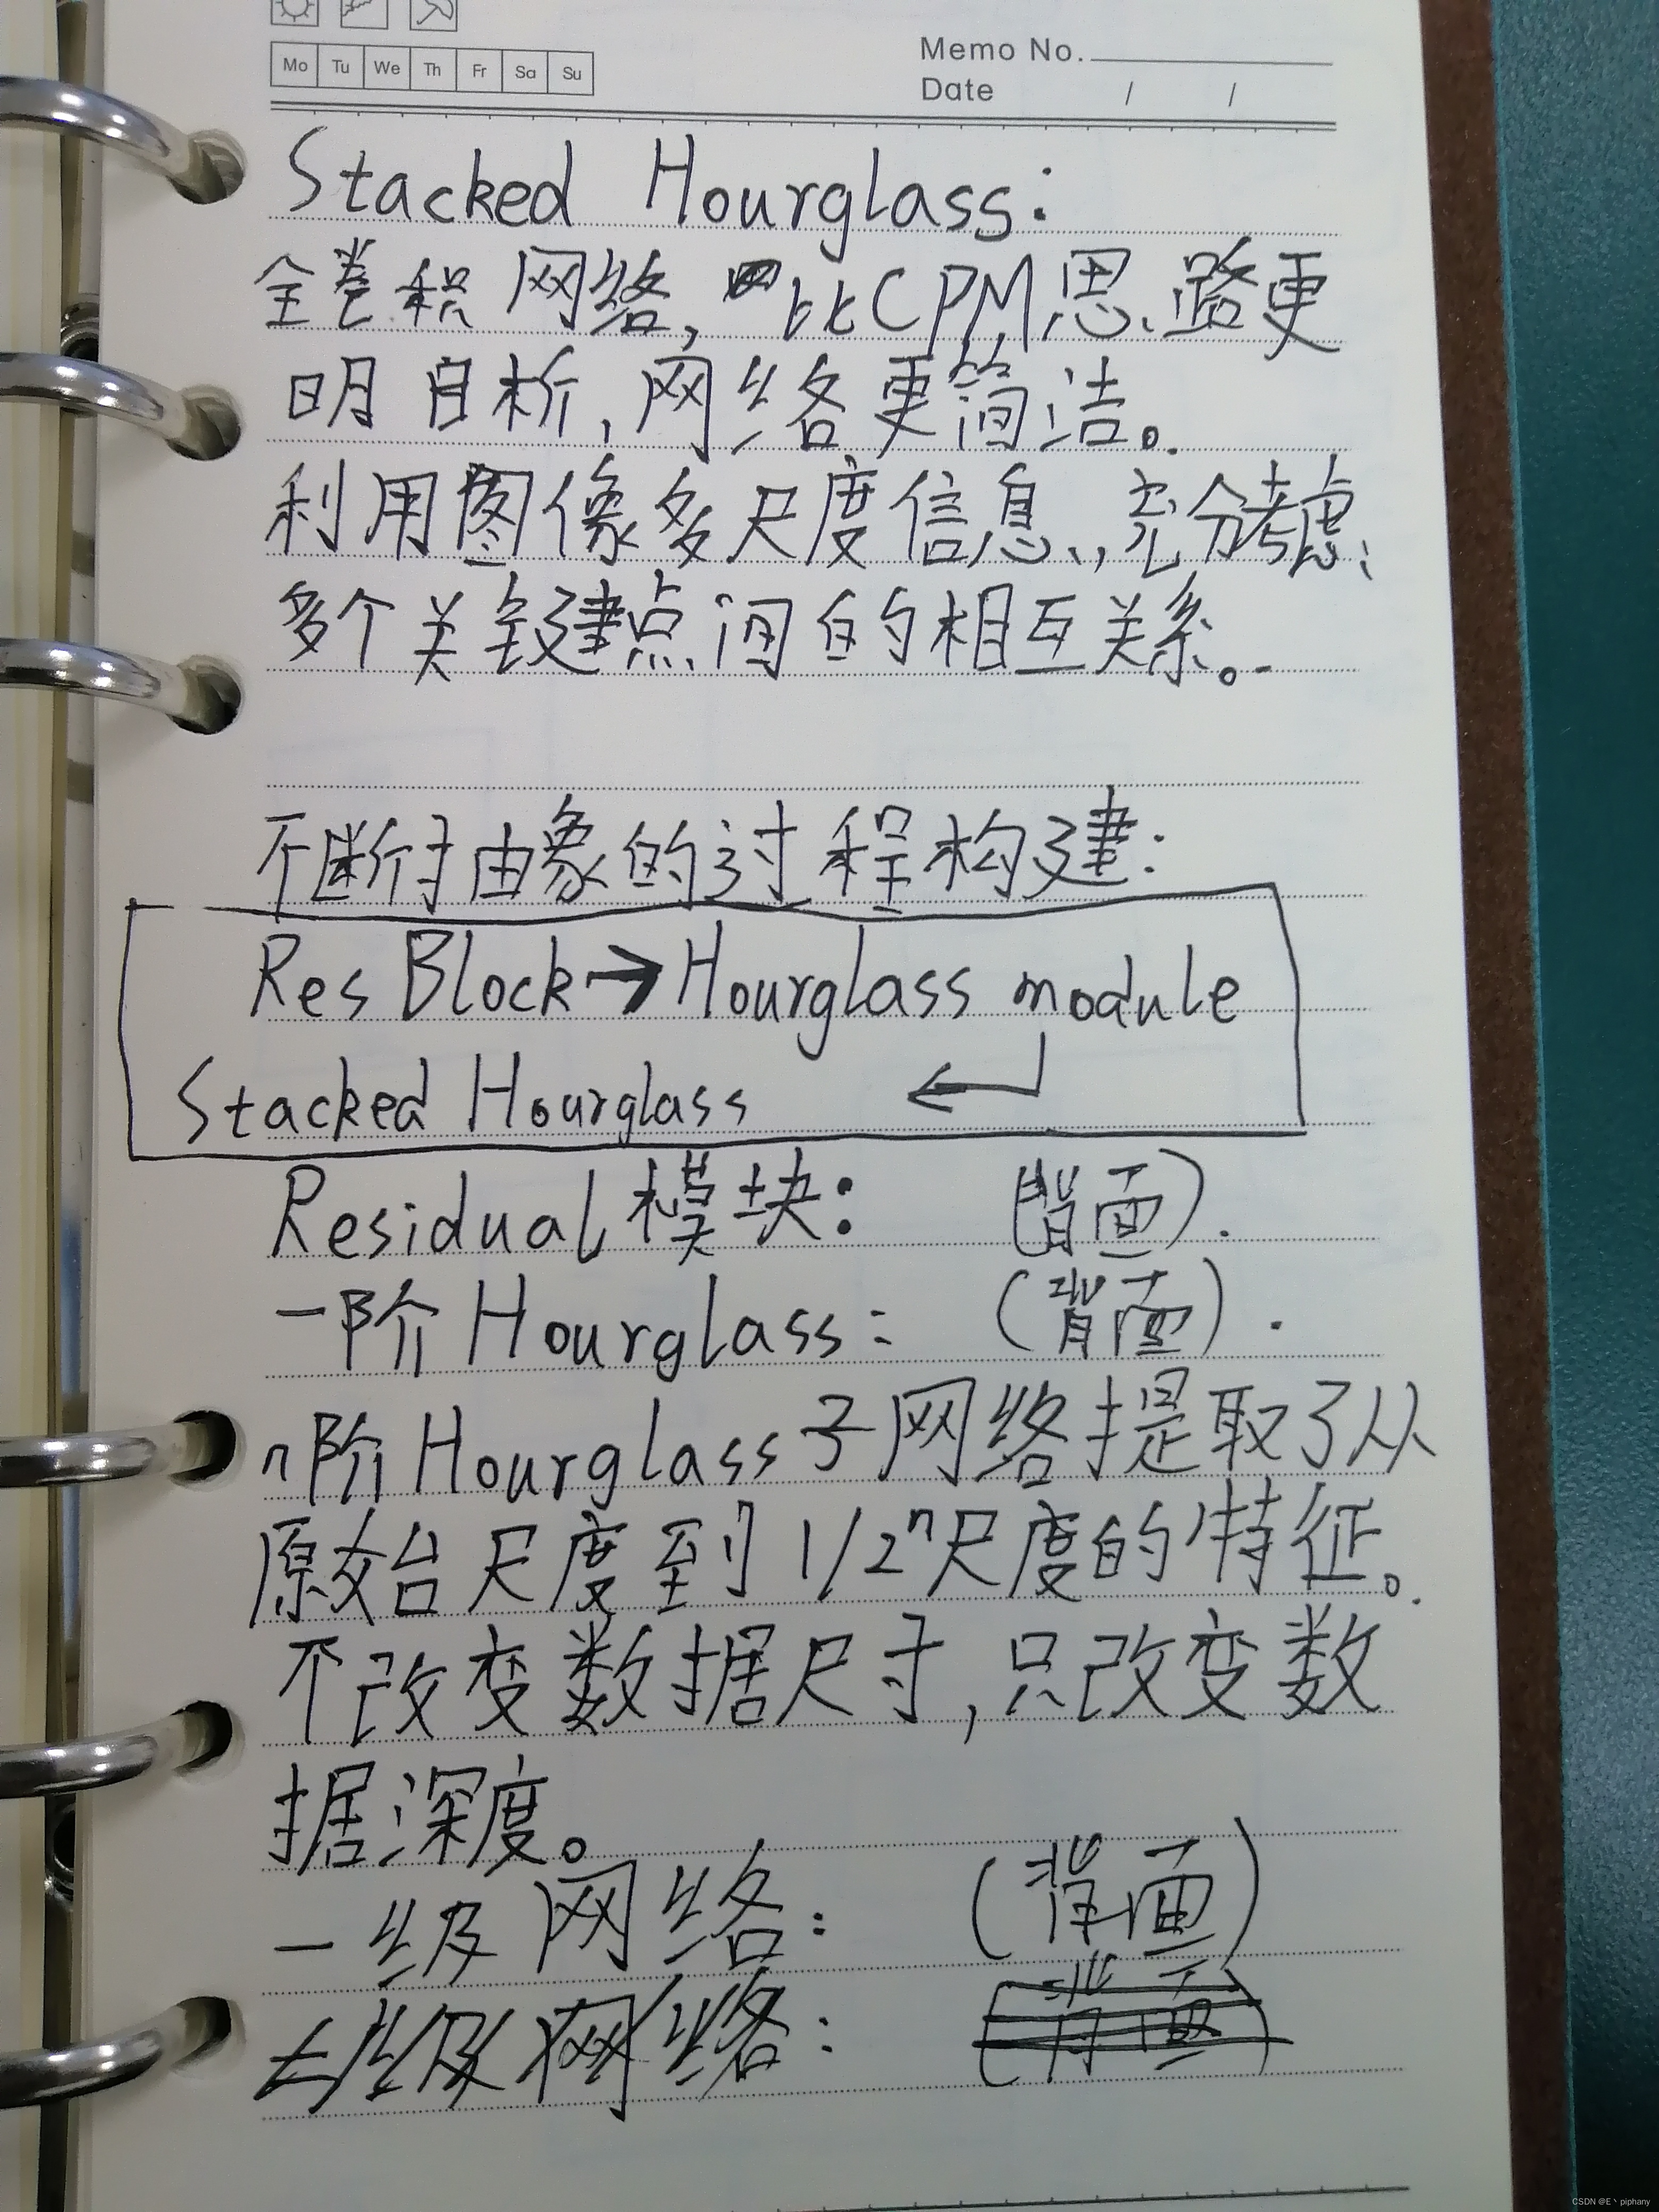 Mo Tu We Th Fr Sa Su
Memo No.
Date / /
Stacked Hourglass:
全卷积网络,比CPM思路更
明晰,网络更简洁。
利用图像多尺度信息,充分考虑
多个关键点间的相互关系。
不断抽象的过程构建:
Res Block→Hourglass module
Stacked Hourglass ←
Residual模块: (背面).
一阶Hourglass: (背面).
n阶Hourglass子网络提取了从
原始尺度到1/2ⁿ尺度的特征。
不改变数据尺寸,只改变数
据深度。
一级网络: (背面)
二级网络: (背面)
CSDN @E丶piphany